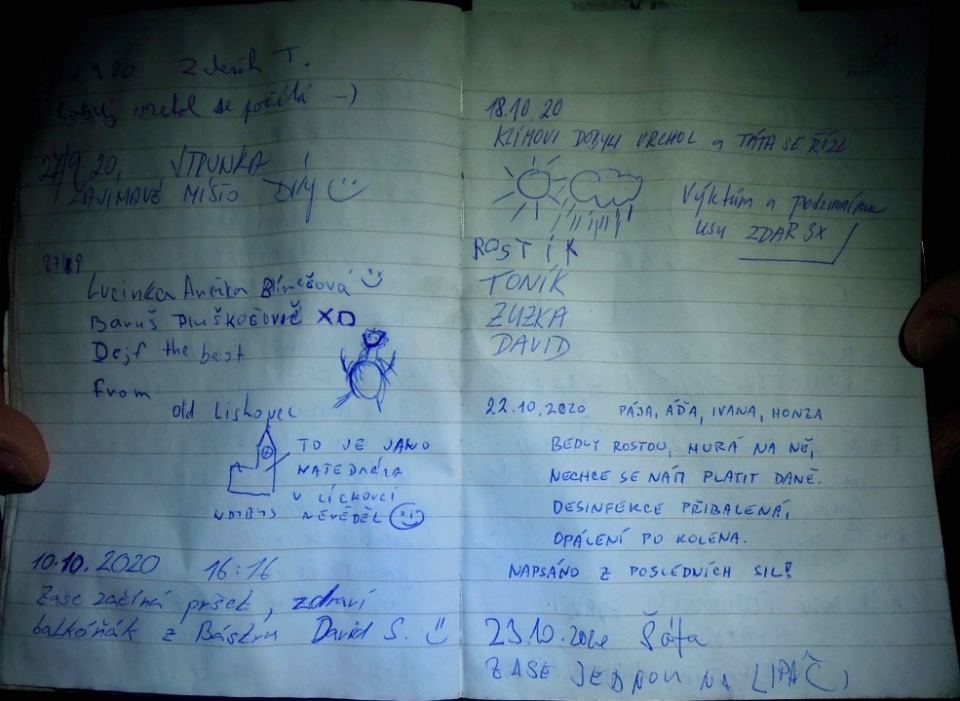 20 Zdeněk T.
Každý vrchol se počítá :-)
27/9 20,
ZAJÍMAVÉ MÍSTO DÍKY
27/9
Lucinka Anička
Baruš
Dejf the best
from
old Liskovec
TO JE JAKO
V
NEVĚDĚL
10.10.2020 16:16
Zase začíná pršet, zdraví
z Báštku David S.
18.10.20
KLÍMOVI DOBYLI VRCHOL a TÁTA SE ŘÍZL
Výktům a podzimnímu
ZDAR 3X
ROSTÍK
TONÍK
ZUZKA
DAVID
22.10.2020 PÁJA, ÁĎA, IVANA, HONZA
BEDLY ROSTOU, HURÁ NA NĚ,
NECHCE SE NÁM PLATIT DANĚ.
DESINFEKCE PŘIBALENA,
OPÁLENÍ PO KOLENA.
NAPSÁNO Z POSLEDNÍCH SIL!
23.10.2020
ZASE JEDNOU NA LIPÁČ